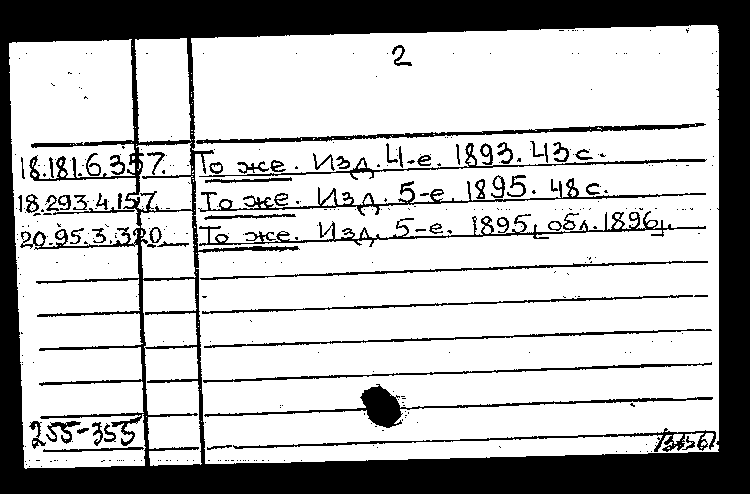 2
18.181.6.357. То же. Изд. 4-е. 1893. 43 с.
18.293.4.157. То же. Изд. 5-е. 1895. 48 с.
20.95.3.320. То же. Изд. 5-е. 1895 [обл. 1896].
255-355